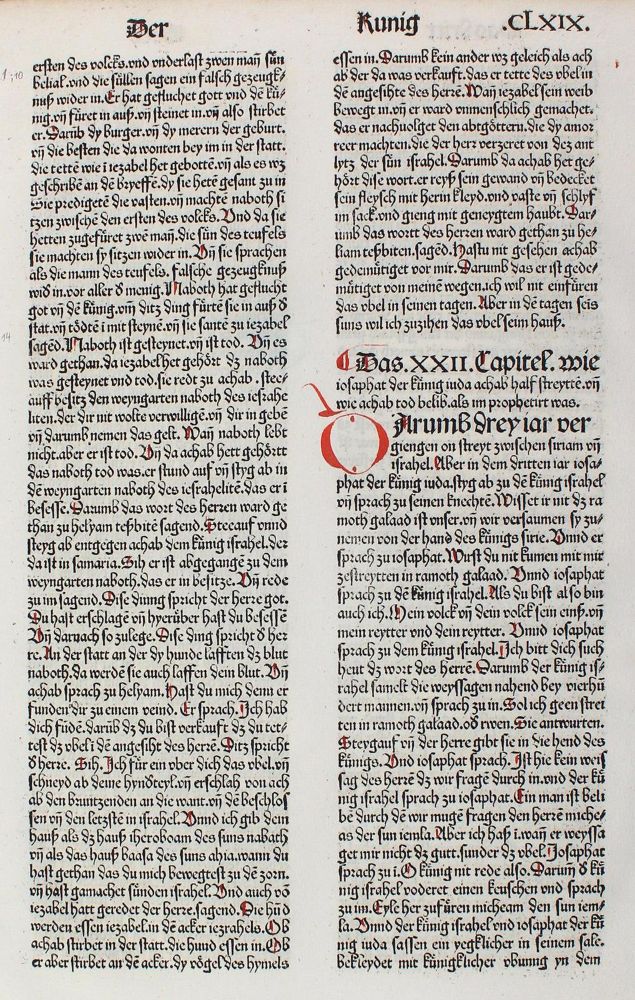 Der
Kunig
.CLXIX.
1:10
ersten des volcks.vnd vnderlast zwen mañ sün
belial.vnd die süllen sagen ein falsch gezeugk⸗
nuß wider in.Er hat gefluchet gott vnd dē kü⸗
nig.vñ füret in auß.vñ steinet in.vñ also stirbet
er.Darūb dy burger.vñ dy merern der geburt.
vñ die besten die da wonten bey im in der statt.
die tettē wie ī iezabel het gebottē.vñ als es wz
geschribē an dē bryeffē.dy sie hetē gesant zu in
Sie predigetē die vasten.vñ machtē naboth si
tzen zwischē den ersten des volcks.Vnd da sie
hetten zugefüret zwē mañ.die sün des teufels
sie machten sy sitzen wider in.Vñ sie sprachen
als die mann des teufels. falsche gezeugknuß
wid̄ in.vor aller d̄ menig.Naboth hat gefluchet
got vñ dē künig.vñ ditz ding fürtē sie in auß d̄
stat.vñ tödtē ī mit steynē.vñ sie santē zu iezabel
14
sagēd.Naboth ist gesteynet.vñ ist tod. Vñ es
ward gethan.da iezabel het gehört dz naboth
was gesteynet vnd tod.sie redt zu achab .stee⸗
auff besitz den weyngarten naboth des iesrahe
liten.der dir nit wolte verwilligē.vñ dir in gebē
vñ darumb nemen das gelt. Wañ naboth lebt
nicht.aber er ist tod. Vñ da achab hett gehörtt
das naboth tod was.er stund auf vñ styg ab in
dē weyngarten naboth des iesrahelitē.das er ī
besesse.Darumb das wort des herren ward ge
than zu helyam teßbitē sagend.Steeauf vnnd
steyg ab entgegen achab dem künig israhel.der
da ist in samaria.Sih er ist abgegangē zu dem
weyngarten naboth.das er in besitze. Vñ rede
zu im sagend.Dise dinng spricht der herre got.
Du hast erschlagē vñ hyerüber hast du besessē
Vñ darnach so zulege.Dise ding spricht d̄ her⸗
re. An der statt an der dy hunde lafften dz blut
naboth.da werdē sie auch laffen dein blut. Vñ
achab sprach zu helyam.Hast du mich denn er
funden dir zu einem veind. Er sprach.Ich hab
dich fūdē.darūb dz du bist verkauft dz du tet⸗
test dz vbel ī dē angesiht des herrē.Ditz spricht
d̄ herre. Sih.Ich für ein vber dich das vbel.vñ
schneyd ab deine hyndreyl.vñ erschlah von ach
ab den bruntzenden an die want.vñ dē beschlos
sen vñ den letzstē in israhel.Vnnd ich gib dein
hauß als dz hauß iheroboam des suns nabath
vñ als das hauß baasa des suns ahia.wann du
hast gethan das du mich bewegtest zu dē zorn.
vñ hast gamachet sünden israhel.Vnd auch vō
iezabel hatt geredet der herre.sagend.Die hūd
werden essen iezabel.in dē acker iezrahels.Ob
achab stirbet in der statt.die hund essen in.Ob
er aber stirbet an dē acker.dy vögel des hymels
essen in.Darumb kein ander wz geleich als ach
ab der da was verkauft.das er tette des vbel in
dē angesihte des herrē.Wañ iezabel sein weib
bewegt in.vñ er ward vnmenschlich gemachet.
das er nachuolget den abtgöttern.die dy amor
reer machten.die der herr verzeret von dez ant
lytz der sün israhel.Darumb da achab het ge⸗
hört dise wort.er reyß sein gewand vñ bedecket
sein fleysch mit herin kleyd.vnd vaste vñ schlyf
im sack.vnd gieng mit geneygtem haubt.Dar⸗
umb das wortt des herren ward gethan zu he⸗
liam teßbiten.sagēd.Hastu nit gesehen achab
gedemütiget vor mir.Darumb das er ist gede⸗
mütiget von meinē wegen.ich wil nit einfüren
das vbel in seinen tagen.Aber in dē tagen seīs
suns wil ich zuzihen das vbel seim hauß.
¶ Das.XXII.Capitel. wie
iosaphat der künig iuda achab half streyttē.vñ
wie achab tod belib.als im prophetirt was.
DArumb drey iar ver
giengen on streyt zwischen siriam vñ
israhel.Aber in dem dritten iar iosa⸗
phat der künig iuda.styg ab zu dē künig israhel
vñ sprach zu seinen knechtē.Wisset ir nit dz ra
moth galaad ist vnser.vñ wir versaumen sy zu⸗
nemen von der hand des künigs sirie. Vnnd er
sprach zu iosaphat.Wirst du nit kumen mit mir
zestreytten in ramoth galaad. Vnnd iosaphat
sprach zu dē künig israhel.Als du bist also bin
auch ich.Mein volck vñ dein volck sein einß.vñ
mein reytter vnd dein reytter. Vnnd iosaphat
sprach zu dem künig israhel.Ich bitt dich such
heut dz wort des herrē.Darumb der künig is⸗
rahel samelt die weyssagen nahend bey vierhū
dert mannen.vñ sprach zu in.Sol ich geen strei
ten in ramoth galaad.od̄ rwen.Sie antwurten.
Steygauf vñ der herre gibt sie in die hend des
künigs. Vnd iosaphat sprach.Ist hie kein weis
sag des herrē dz wir fragē durch in.vnd der kü
nig israhel sprach zu iosaphat.Ein man ist beli
bē durch dē wir mugē fragen den herrē miche⸗
as der sun iemla.Aber ich haß ī.wañ er weyssa
get mir nicht dz gutt.sunder dz vbel.Josaphat
sprach zu ī.O künig nit rede also.Darumb d̄ kü
nig israhel voderet einen keuschen vnd sprach
zu im.Eyle her zufüren micheam den sun iem⸗
la.Vnnd der künig israhel vnd iosaphat der kü
nig iuda sassen ein yegklicher in seinem sale.
bekleydet mit künigklicher vbunng yn dem